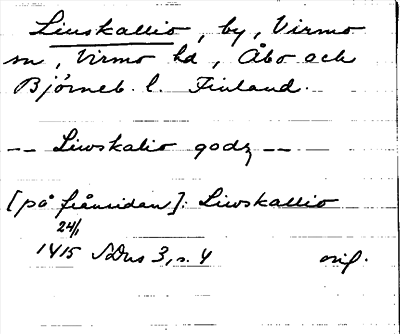 Liuskallio, by, Virmo
sn, Virmo hd, Åbo och
Björneb. l. Finland.
-- Liwskalio godz --
[på frånsidan]: Liwskallio
24/1
1415 SDns 3, s. 4 orig.